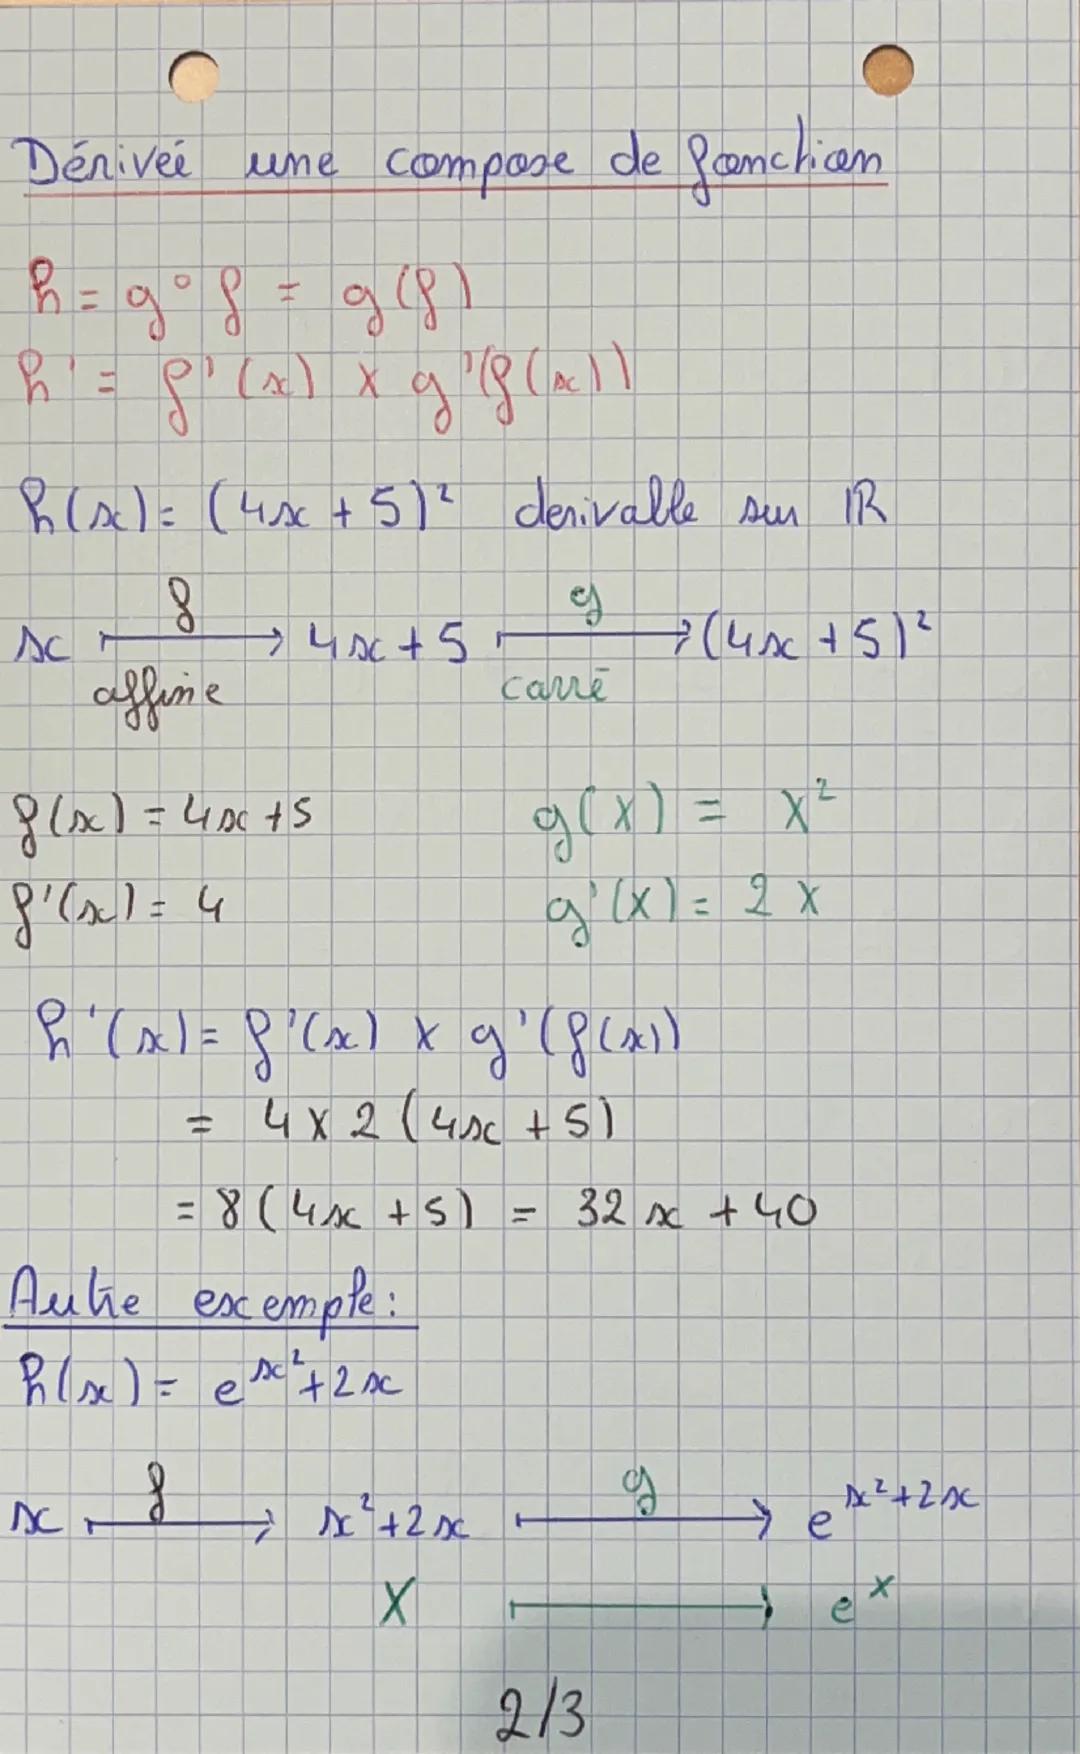 Dérivée une compose de fonction
h = g ∘ f = g(f)
h' = f'(x) × g'(f(x))
h(x) = (4x + 5)² derivable sur ℝ
f g
x ⟼ 4x + 5 ⟼ (4x + 5)²
affine carré
f(x) = 4x + 5 g(X) = X²
f'(x) = 4 g'(X) = 2X
h'(x) = f'(x) × g'(f(x))
= 4 × 2 (4x + 5)
= 8 (4x + 5) = 32x + 40
Autre exemple :
h(x) = e^x²+2x
f g
x ⟼ x² + 2x ⟼ e^x²+2x
X ⟼ e^X
2/3